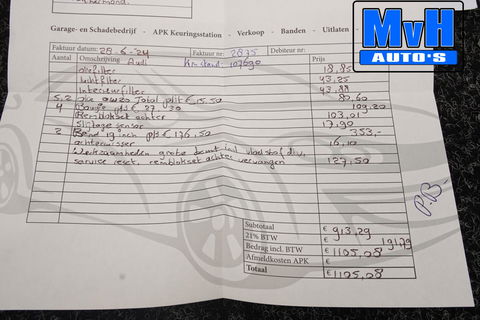 MvH
AUTO'S
Garage- en Schadebedrijf - APK Keuringsstation - Verkoop - Banden - Uitlaten -
Factuur datum: 28-6-24 Factuur nr: 2835 Debiteur nr:
Aantal Omschrijving Audi Km stand: 107690 Prijs
oliefilter 18,85
luchtfilter 43,25
Interieurfilter 43,88
5.2 olie 0w20 Total p/lt € 15,50 80,60
4 Bougie p/s € 27,30 109,20
Remblokset achter 103,01
Slijtage sensor 17,90
2 Band 19 inch p/s € 176,50 353,-
achterwisser 16,10
Werkzaamheden grote beurt incl vloeistof div,
service reset, remblokset achter vervangen 127,50
Subtotaal € 913,29
21% BTW € 191,79
Bedrag incl. BTW € 1105,08
Afmeldkosten APK €
Totaal € 1105,08
P.B.